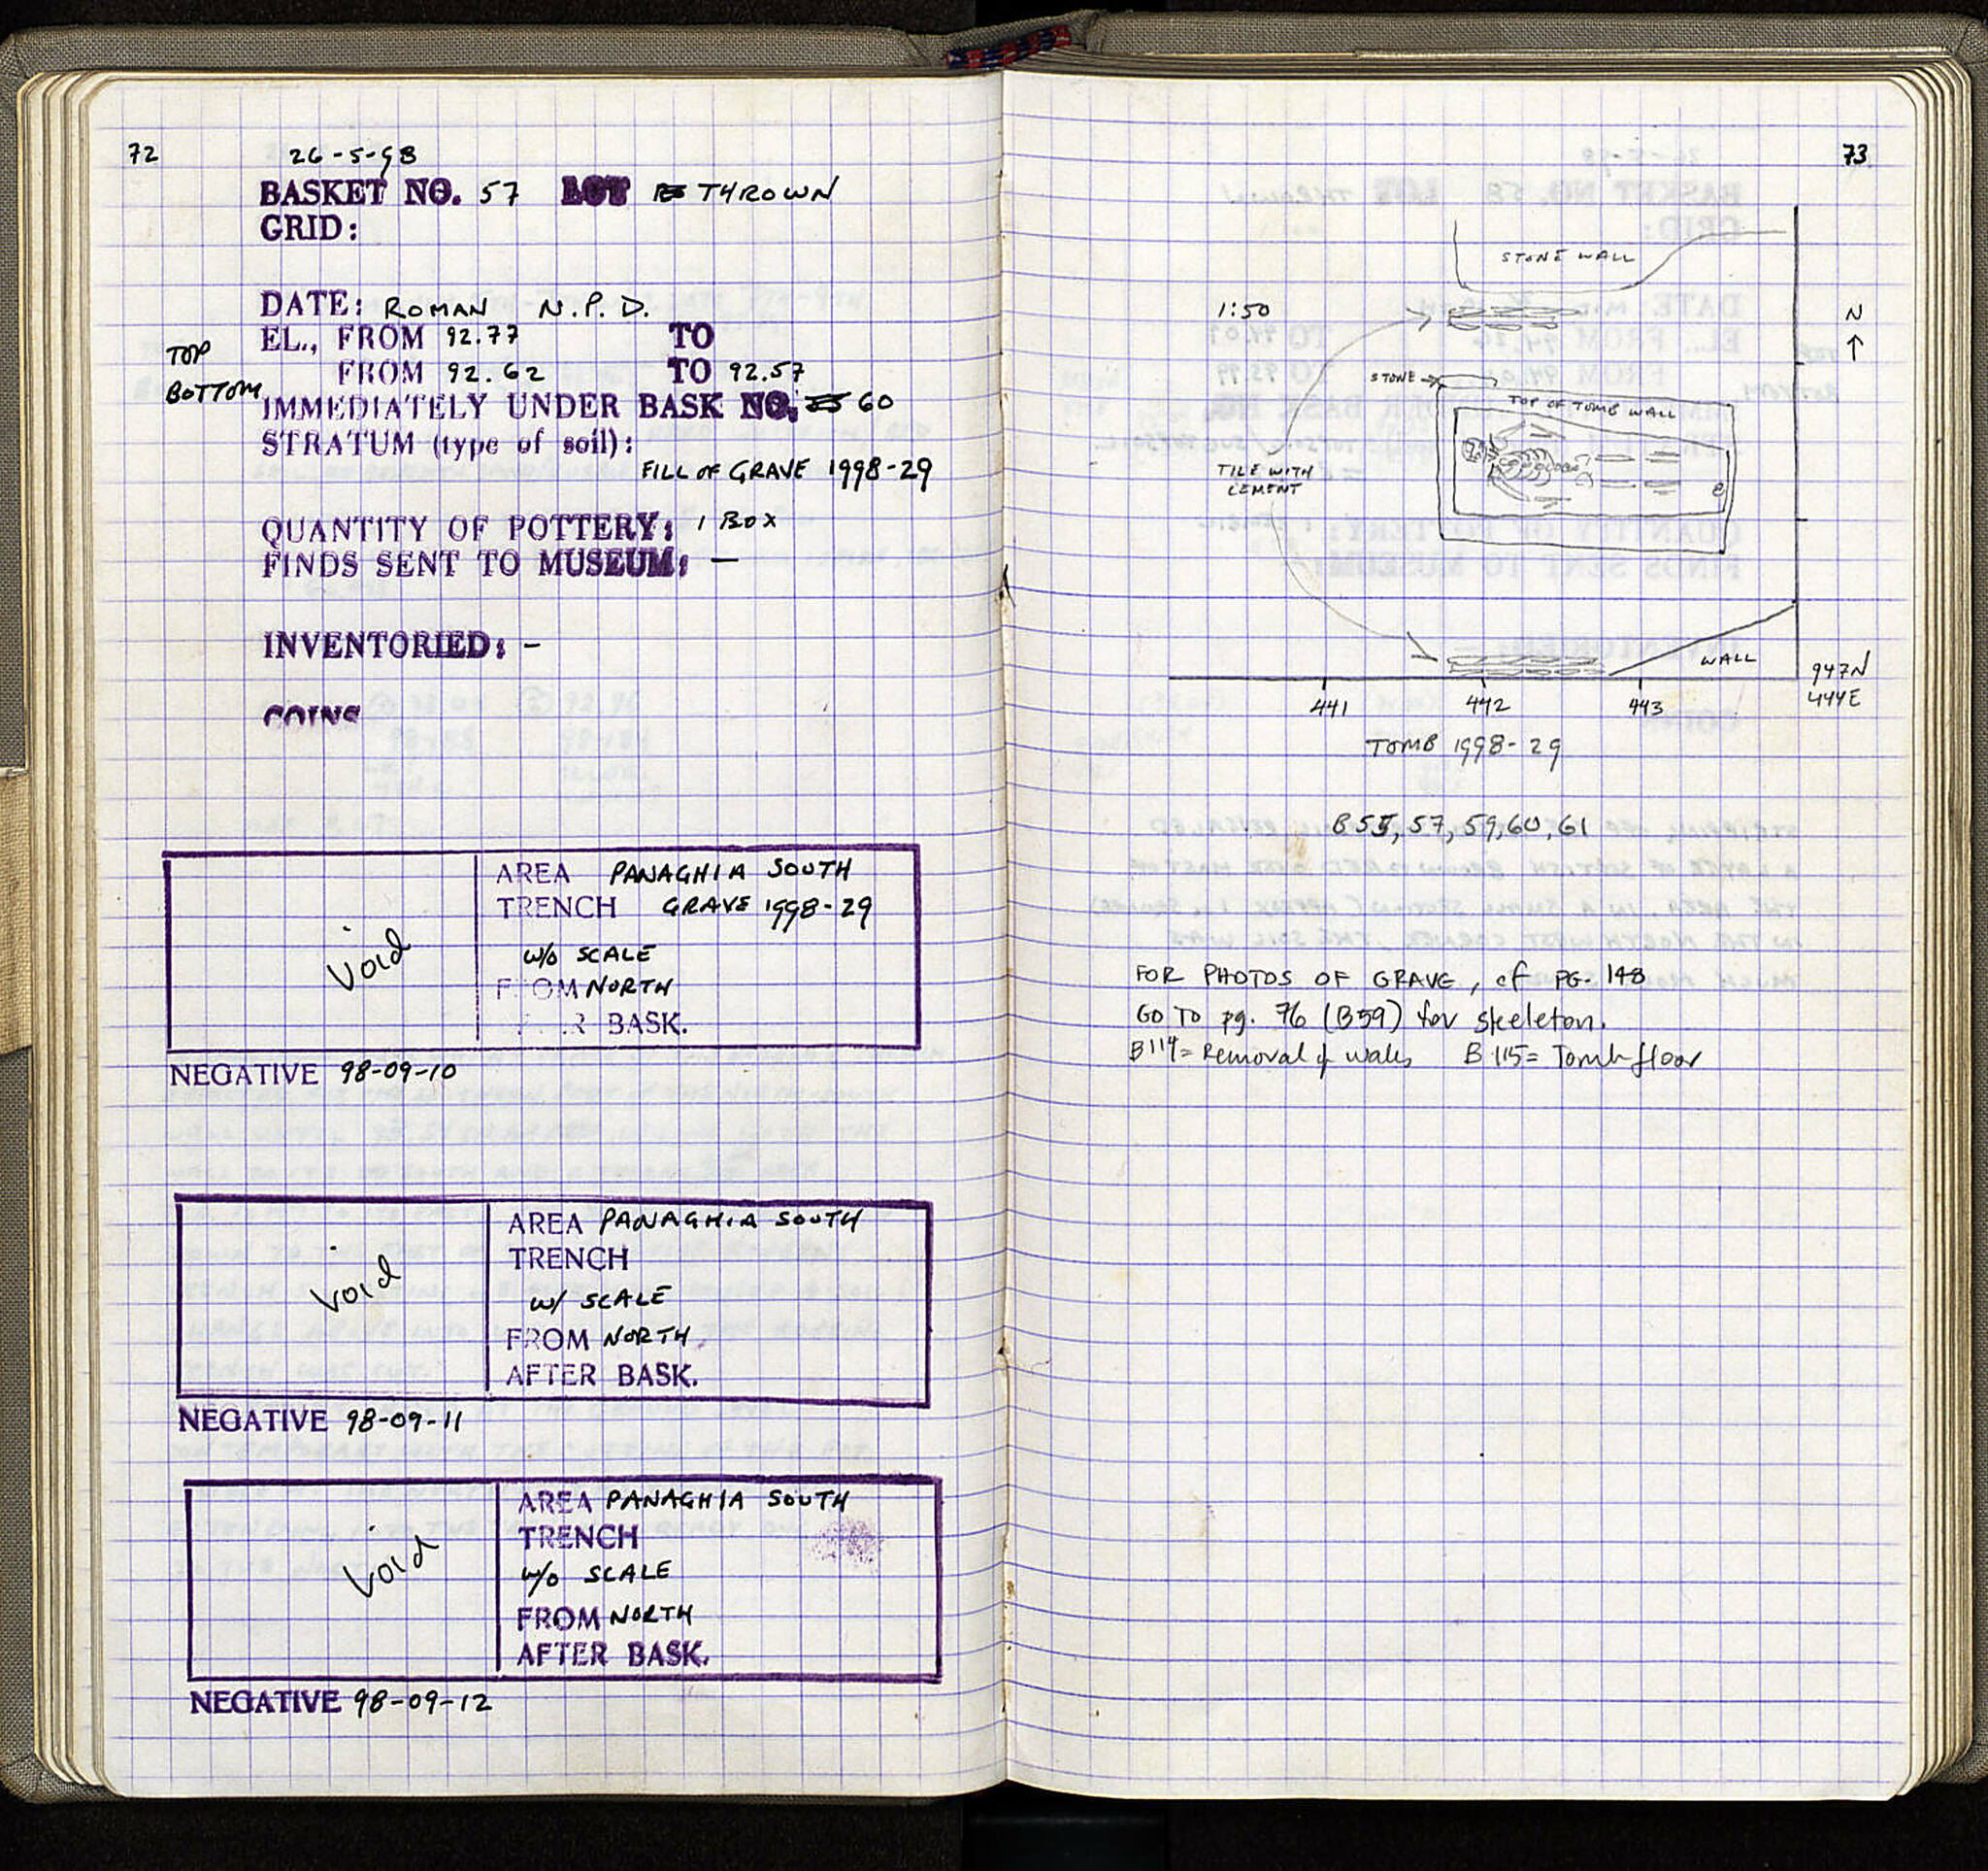 72
26-5-98
BASKET NO. 57 LOT THROWN
GRID:
DATE: ROMAN N.P.D.
TOP EL., FROM 92.77 TO
BOTTOM FROM 92.62 TO 92.57
IMMEDIATELY UNDER BASK NO. 55 60
STRATUM (type of soil):
FILL OF GRAVE 1998-29
QUANTITY OF POTTERY: 1 BOX
FINDS SENT TO MUSEUM: —
INVENTORIED: -
COINS
Void
AREA PANAGHIA SOUTH
TRENCH GRAVE 1998-29
w/o SCALE
FROM NORTH
BASK.
NEGATIVE 98-09-10
Void
AREA PANAGHIA SOUTH
TRENCH
w/ SCALE
FROM NORTH
AFTER BASK.
NEGATIVE 98-09-11
Void
AREA PANAGHIA SOUTH
TRENCH
w/o SCALE
FROM NORTH
AFTER BASK.
NEGATIVE 98-09-12
73
STONE WALL
1:50
N
STONE
TOP OF TOMB WALL
TILE WITH
CEMENT
WALL
947N
444E
441 442 443
TOMB 1998-29
B55, 57, 59, 60, 61
FOR PHOTOS OF GRAVE, cf PG. 148
GO TO pg. 76 (B59) for skeleton.
B114= Removal of walls B115= Tomb floor